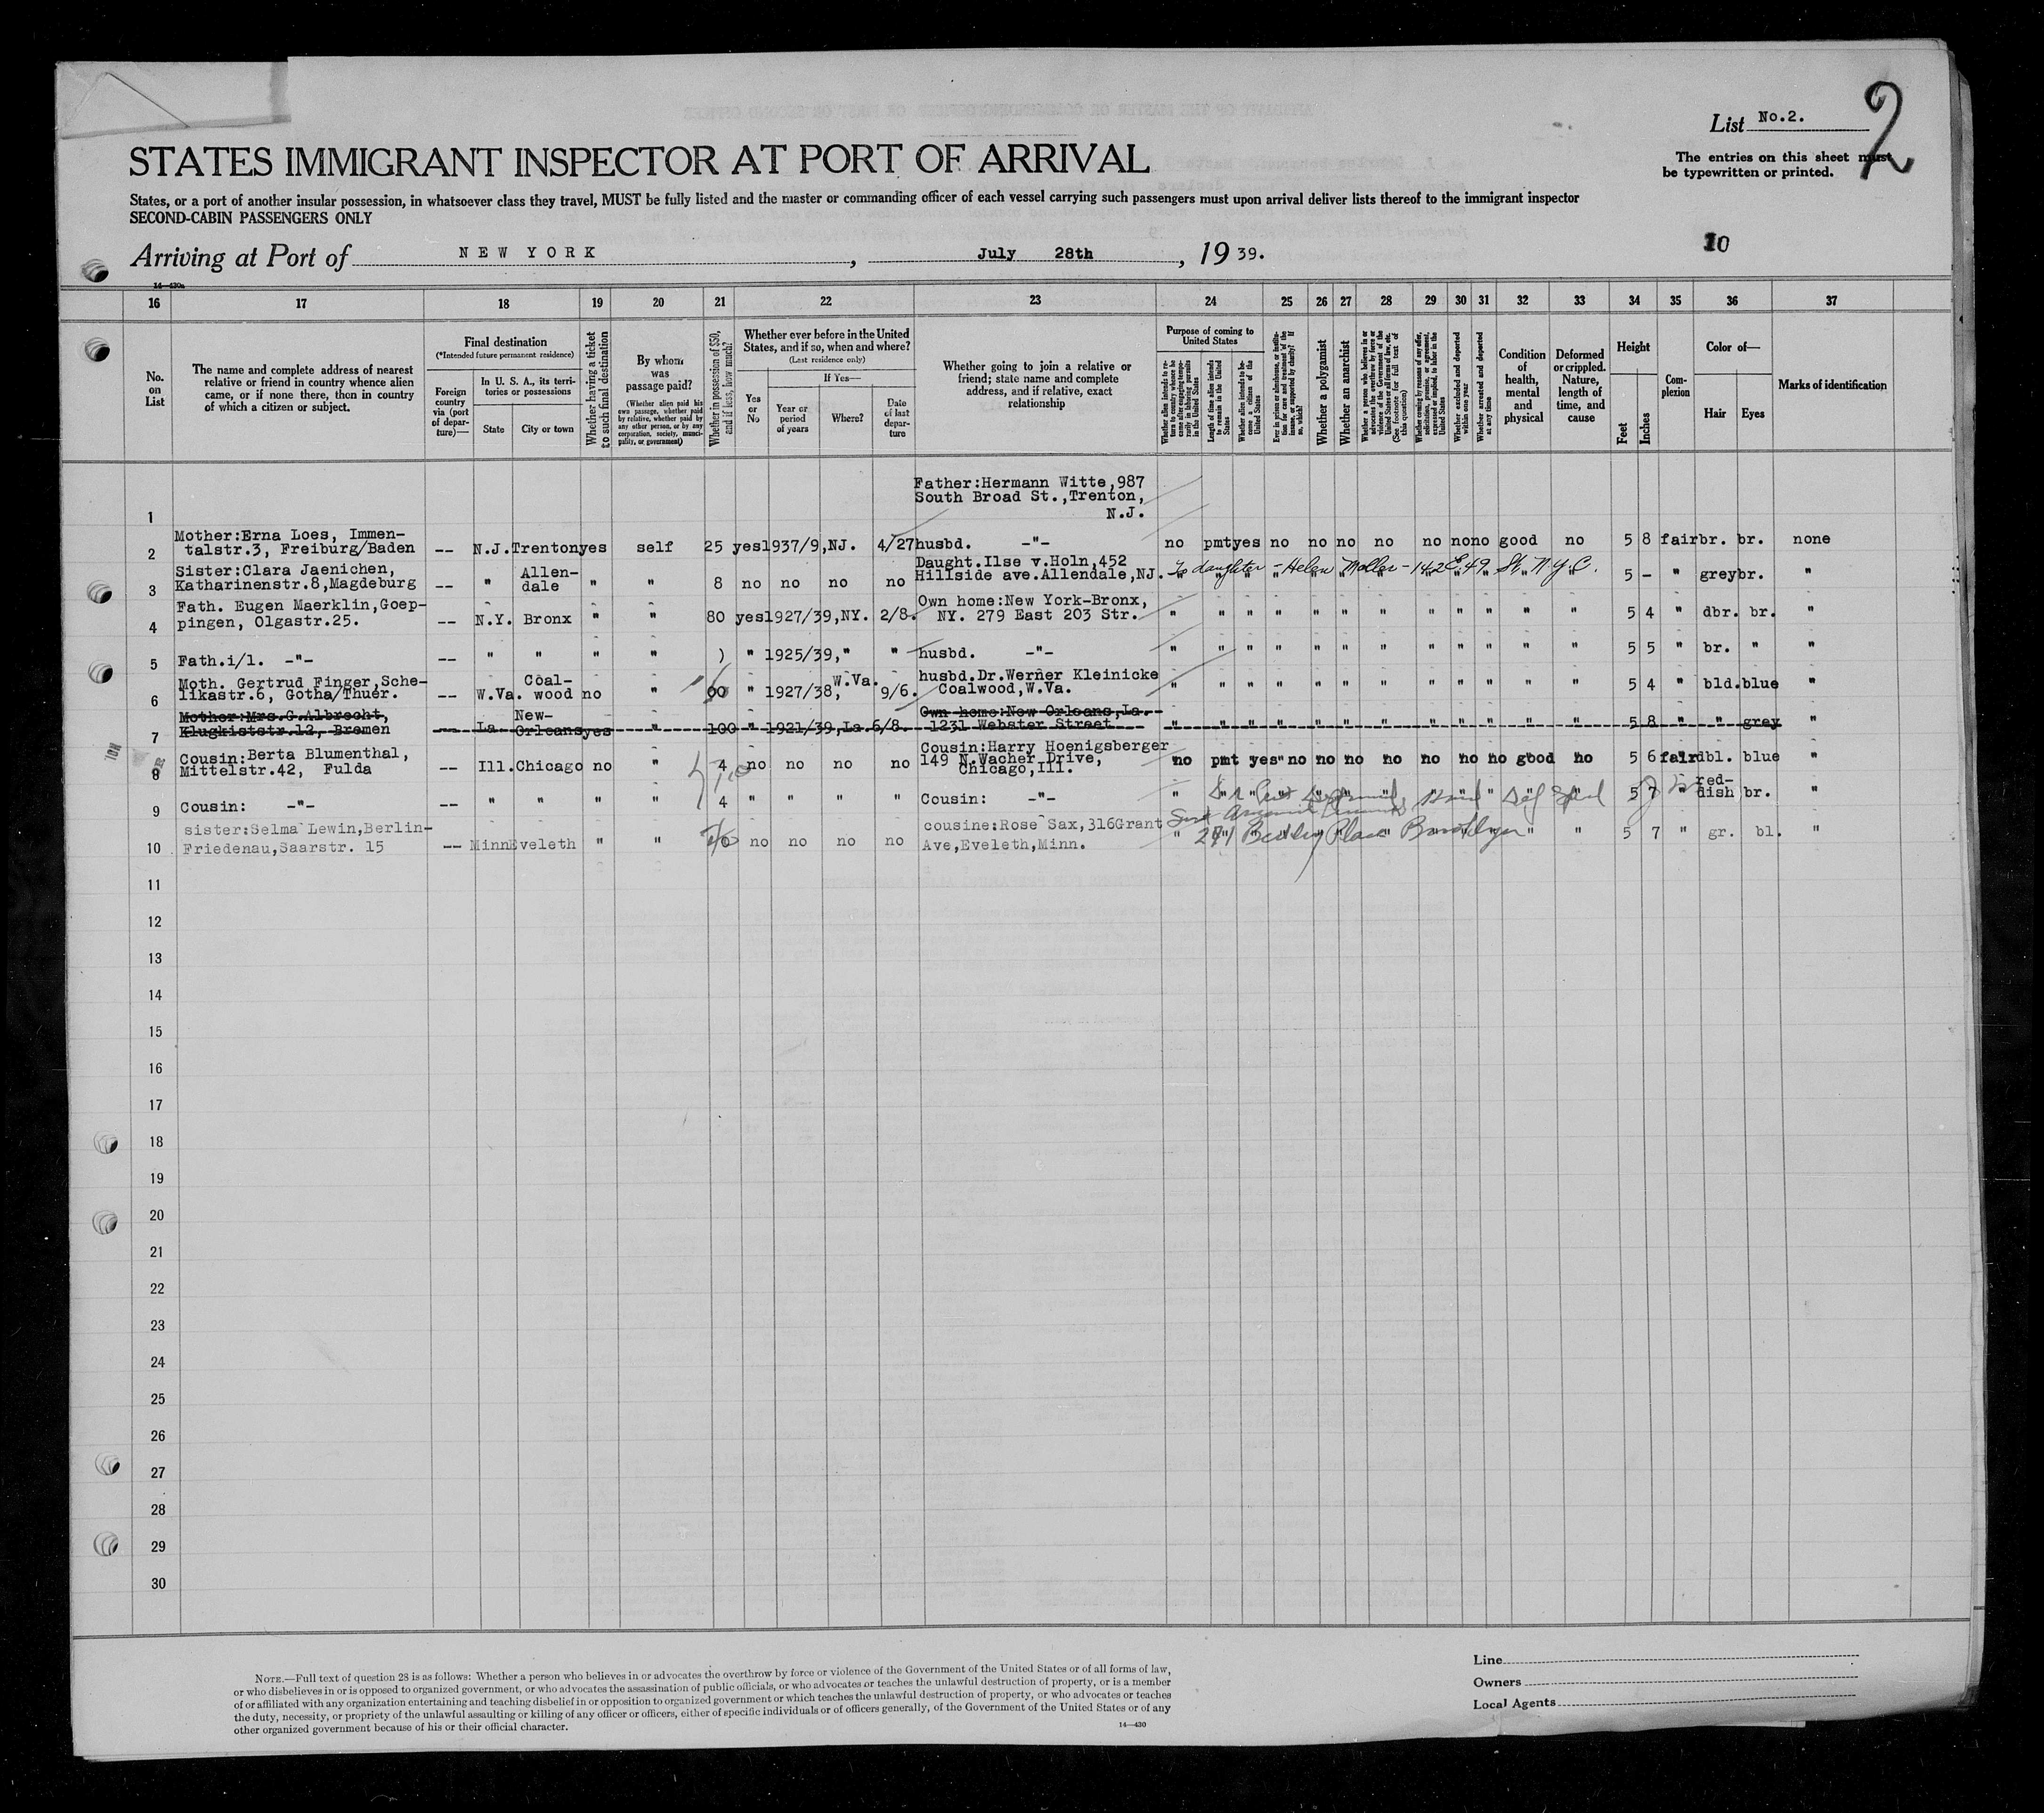 List No.2.
2
The entries on this sheet must
be typewritten or printed.
STATES IMMIGRANT INSPECTOR AT PORT OF ARRIVAL
States, or a port of another insular possession, in whatsoever class they travel, MUST be fully listed and the master or commanding officer of each vessel carrying such passengers must upon arrival deliver lists thereof to the immigrant inspector
SECOND-CABIN PASSENGERS ONLY
Arriving at Port of NEW YORK, July 28th, 1939.
10
14—430a
16 17 18 19 20 21 22 23 24 25 26 27 28 29 30 31 32 33 34 35 36 37
No. on List
The name and complete address of nearest relative or friend in country whence alien came, or if none there, then in country of which a citizen or subject.
Final destination
(*Intended future permanent residence)
Foreign country via (port of departure)—
In U. S. A., its territories or possessions
State
City or town
Whether having a ticket to such final destination
By whom was passage paid?
(Whether alien paid his own passage, whether paid by relative, whether paid by any other person, or by any corporation, society, municipality, or government)
Whether in possession of $50, and if less, how much?
Whether ever before in the United States, and if so, when and where?
(Last residence only)
Yes or No
If Yes—
Year or period of years
Where?
Date of last departure
Whether going to join a relative or friend; state name and complete address, and if relative, exact relationship
Purpose of coming to United States
Whether alien intends to return to country whence he came after engaging temporarily in laboring pursuits in the United States
Length of time alien intends to remain in the United States
Whether alien intends to become a citizen of the United States
Ever in prison or almshouse, or institution for care and treatment of the insane, or supported by charity? If so, which?
Whether a polygamist
Whether an anarchist
Whether a person who believes in or advocates the overthrow by force or violence of the Government of the United States or all forms of law, etc. (See footnote for full text of this question)
Whether coming by reasons of any offer, solicitation, promise, or agreement, expressed or implied, to labor in the United States
Whether excluded and deported within one year
Whether arrested and deported at any time
Condition of health, mental and physical
Deformed or crippled. Nature, length of time, and cause
Height
Feet
Inches
Complexion
Color of—
Hair
Eyes
Marks of identification
Father:Hermann Witte,987
South Broad St.,Trenton,
1 N.J.
Mother:Erna Loes, Immen-
2 talstr.3, Freiburg/Baden -- N.J. Trenton yes self 25 yes 1937/9, NJ. 4/27 husbd. -"- no pmt yes no no no no no no no good no 5 8 fair br. br. none
Sister:Clara Jaenichen, Allen- Daught.Ilse v.Holn,452
3 Katharinenstr.8,Magdeburg -- " dale " " 8 no no no no Hillside ave.Allendale,NJ. " " " " " " " " " " " " 5 - " grey br. "
To daughter - Helen Moller - 142 E. 49 St. N.Y.C.
Fath. Eugen Maerklin,Goep- Own home:New York-Bronx,
4 pingen, Olgastr.25. -- N.Y. Bronx " " 80 yes 1927/39,NY. 2/8. NY. 279 East 203 Str. " " " " " " " " " " " " 5 4 " dbr. br. "
5 Fath.i/l. -"- -- " " " " ) " 1925/39," " husbd. -"- " " " " " " " " " " " " 5 5 " br. " "
Moth. Gertrud Finger,Sche- Coal- W.Va. husbd.Dr.Werner Kleinicke
6 likastr.6, Gotha/Thuer. -- W.Va. wood no " " 1927/38, 9/6. Coalwood,W.Va. " " " " " " " " " " " " 5 4 " bld. blue "
Mother:Mrs.G.Albrecht, New- Own home:New Orleans,La.
7 Klugkiststr.12, Bremen -- La. Orleans yes " 100 " 1921/39,La. 6/8. 1231 Webster Street " " " " " " " " " " " " 5 8 " " grey "
Cousin:Berta Blumenthal, Cousin:Harry Hoenigsberger
8 Mittelstr.42, Fulda -- Ill. Chicago no " 4 no no no no 149 N.Wacher Drive, no pmt yes no no no no no no no good no 5 6 fair dbl. blue "
Chicago,Ill.
9 Cousin: -"- -- " " " " 4 " " " " Cousin: -"- " " " " " " " " " " 5 7 " red- dish br. "
sister:Selma Lewin,Berlin- cousine:Rose Sax,316Grant
10 Friedenau,Saarstr. 15 -- Minn Eveleth " " no no no no Ave,Eveleth,Minn. " " " " " " " 5 7 " gr. bl. "
Place Brooklyn
11
12
13
14
15
16
17
18
19
20
21
22
23
24
25
26
27
28
29
30
NOTE.—Full text of question 28 is as follows: Whether a person who believes in or advocates the overthrow by force or violence of the Government of the United States or of all forms of law,
or who disbelieves in or is opposed to organized government, or who advocates the assassination of public officials, or who advocates or teaches the unlawful destruction of property, or is a member
of or affiliated with any organization entertaining and teaching disbelief in or opposition to organized government or which teaches the unlawful destruction of property, or who advocates or teaches
the duty, necessity, or propriety of the unlawful assaulting or killing of any officer or officers, either of specific individuals or of officers generally, of the Government of the United States or of any
other organized government because of his or their official character.
14—430
Line
Owners
Local Agents